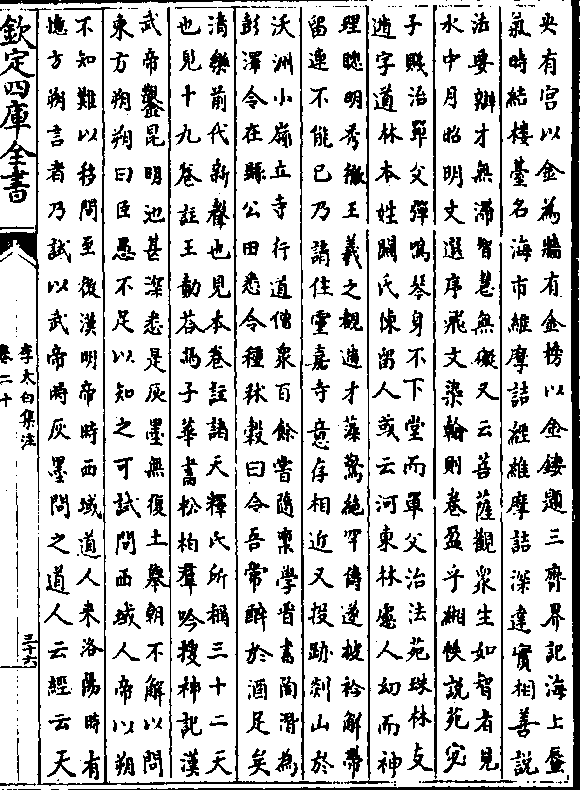 央有宫以金為牆有金榜以金鏤題三齊界記海上蜃
氣時結樓臺名海市維摩詰經維摩詰深達實相善說
法要辯才無滯智慧無礙又云菩薩觀衆生如智者見
水中月昭明文選序飛文染翰則卷盈乎緗帙說苑宓
子賤治單父彈鳴琴身不下堂而單父治法苑珠林支
遁字道林本姓關氏陳留人或云河東林慮人幼而神
理聰明秀徹王羲之覩遁才藻驚絶罕儔遂披衿解帶
留連不能已乃請住靈嘉寺意存相近又投跡剡山於
沃洲小嶺立寺行道僧衆百餘嘗隨禀學晉書陶潛為
彭澤令在縣公田悉令種秫穀曰令吾常醉於酒足矣
清樂前代新聲也見本卷註諸天釋氏所稱三十二天
也見十九卷註王勣答馮子華書松柏羣吟搜神記漢
武帝鑿昆明池甚深悉是灰墨無復土舉朝不解以問
東方朔朔曰臣愚不足以知之可試問西域人帝以朔
不知難以移問至後漢明帝時西域道人來洛陽時有
憶方朔言者乃試以武帝時灰墨問之道人云經云天
欽定四庫全書
李太白集注
卷二十
三十六